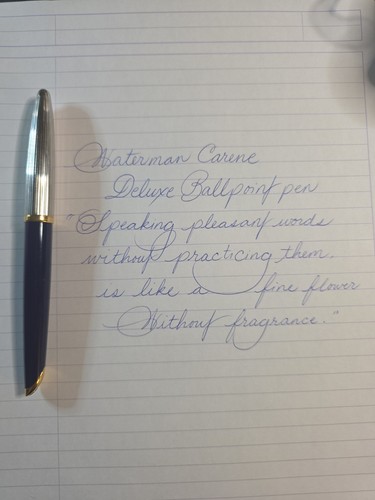 Waterman Carene
Deluxe Ballpoint pen
"Speaking pleasant words
without practicing them.
is like a fine flower
Without fragrance."